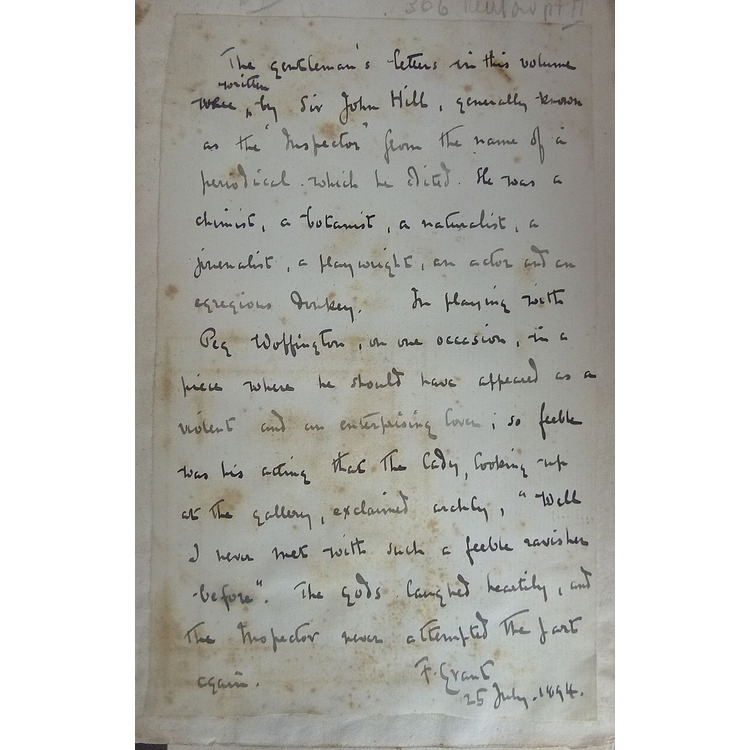 The gentleman's letters in this volume
written
were by Sir John Hill, generally known
as the "Inspector" from the name of a
periodical which he edited. He was a
chimist, a botanist, a naturalist, a
journalist, a playwright, an actor and an
egregious donkey. In playing with
Peg Woffington, on one occasion, in a
piece where he should have appeared as a
violent and an enterprising lover; so feeble
was his acting that the lady, looking up
at the gallery, exclaimed archly, "Well
I never met with such a feeble ravisher
before". The gods laughed heartily, and
the Inspector never attempted the part
again.
F. Grant
25 July. 1894.